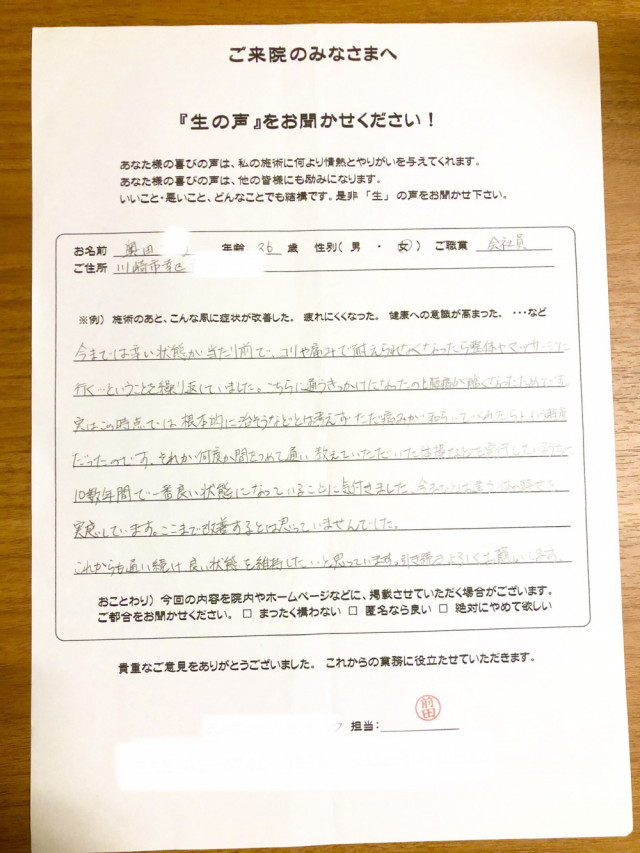 ご来院のみなさまへ
『生の声』をお聞かせください！
あなた様の喜びの声は、私の施術に何より情熱とやりがいを与えてくれます。
あなた様の喜びの声は、他の皆様にも励みになります。
いいこと・悪いこと、どんなことでも結構です。是非「生」の声をお聞かせ下さい。
お名前 奥田 年齢 36 歳 性別（ 男 ・ 女 ） ご職業 会社員
ご住所 川崎市
※例） 施術のあと、こんな風に症状が改善した。 疲れにくくなった。 健康への意識が高まった。 ・・・など
今までは辛い状態が当たり前で、コリや痛みで耐えられなくなったら整体やマッサージに
行く…ということを繰り返していました。こちらに通うきっかけになったのも腰痛が酷くなったためです。
実はこの時点では根本的に治そうなどとは考えず、ただ痛みが和らいでくれたらという
だったのです。それが何度か間をつめて通い、教えていただいた体操などを実行していましたら
10数年間で一番良い状態になっていることに気付きました。今までとは違う
実感しています。ここまで改善するとは思っていませんでした。
これからも通い続け良い状態を維持したいと思っています。引き続きよろしくお願いします。
おことわり） 今回の内容を院内やホームページなどに、掲載させていただく場合がございます。
ご都合をお聞かせください。 □ まったく構わない □ 匿名なら良い □ 絶対にやめて欲しい
貴重なご意見をありがとうございました。 これからの業務に役立たせていただきます。
担当： 前田